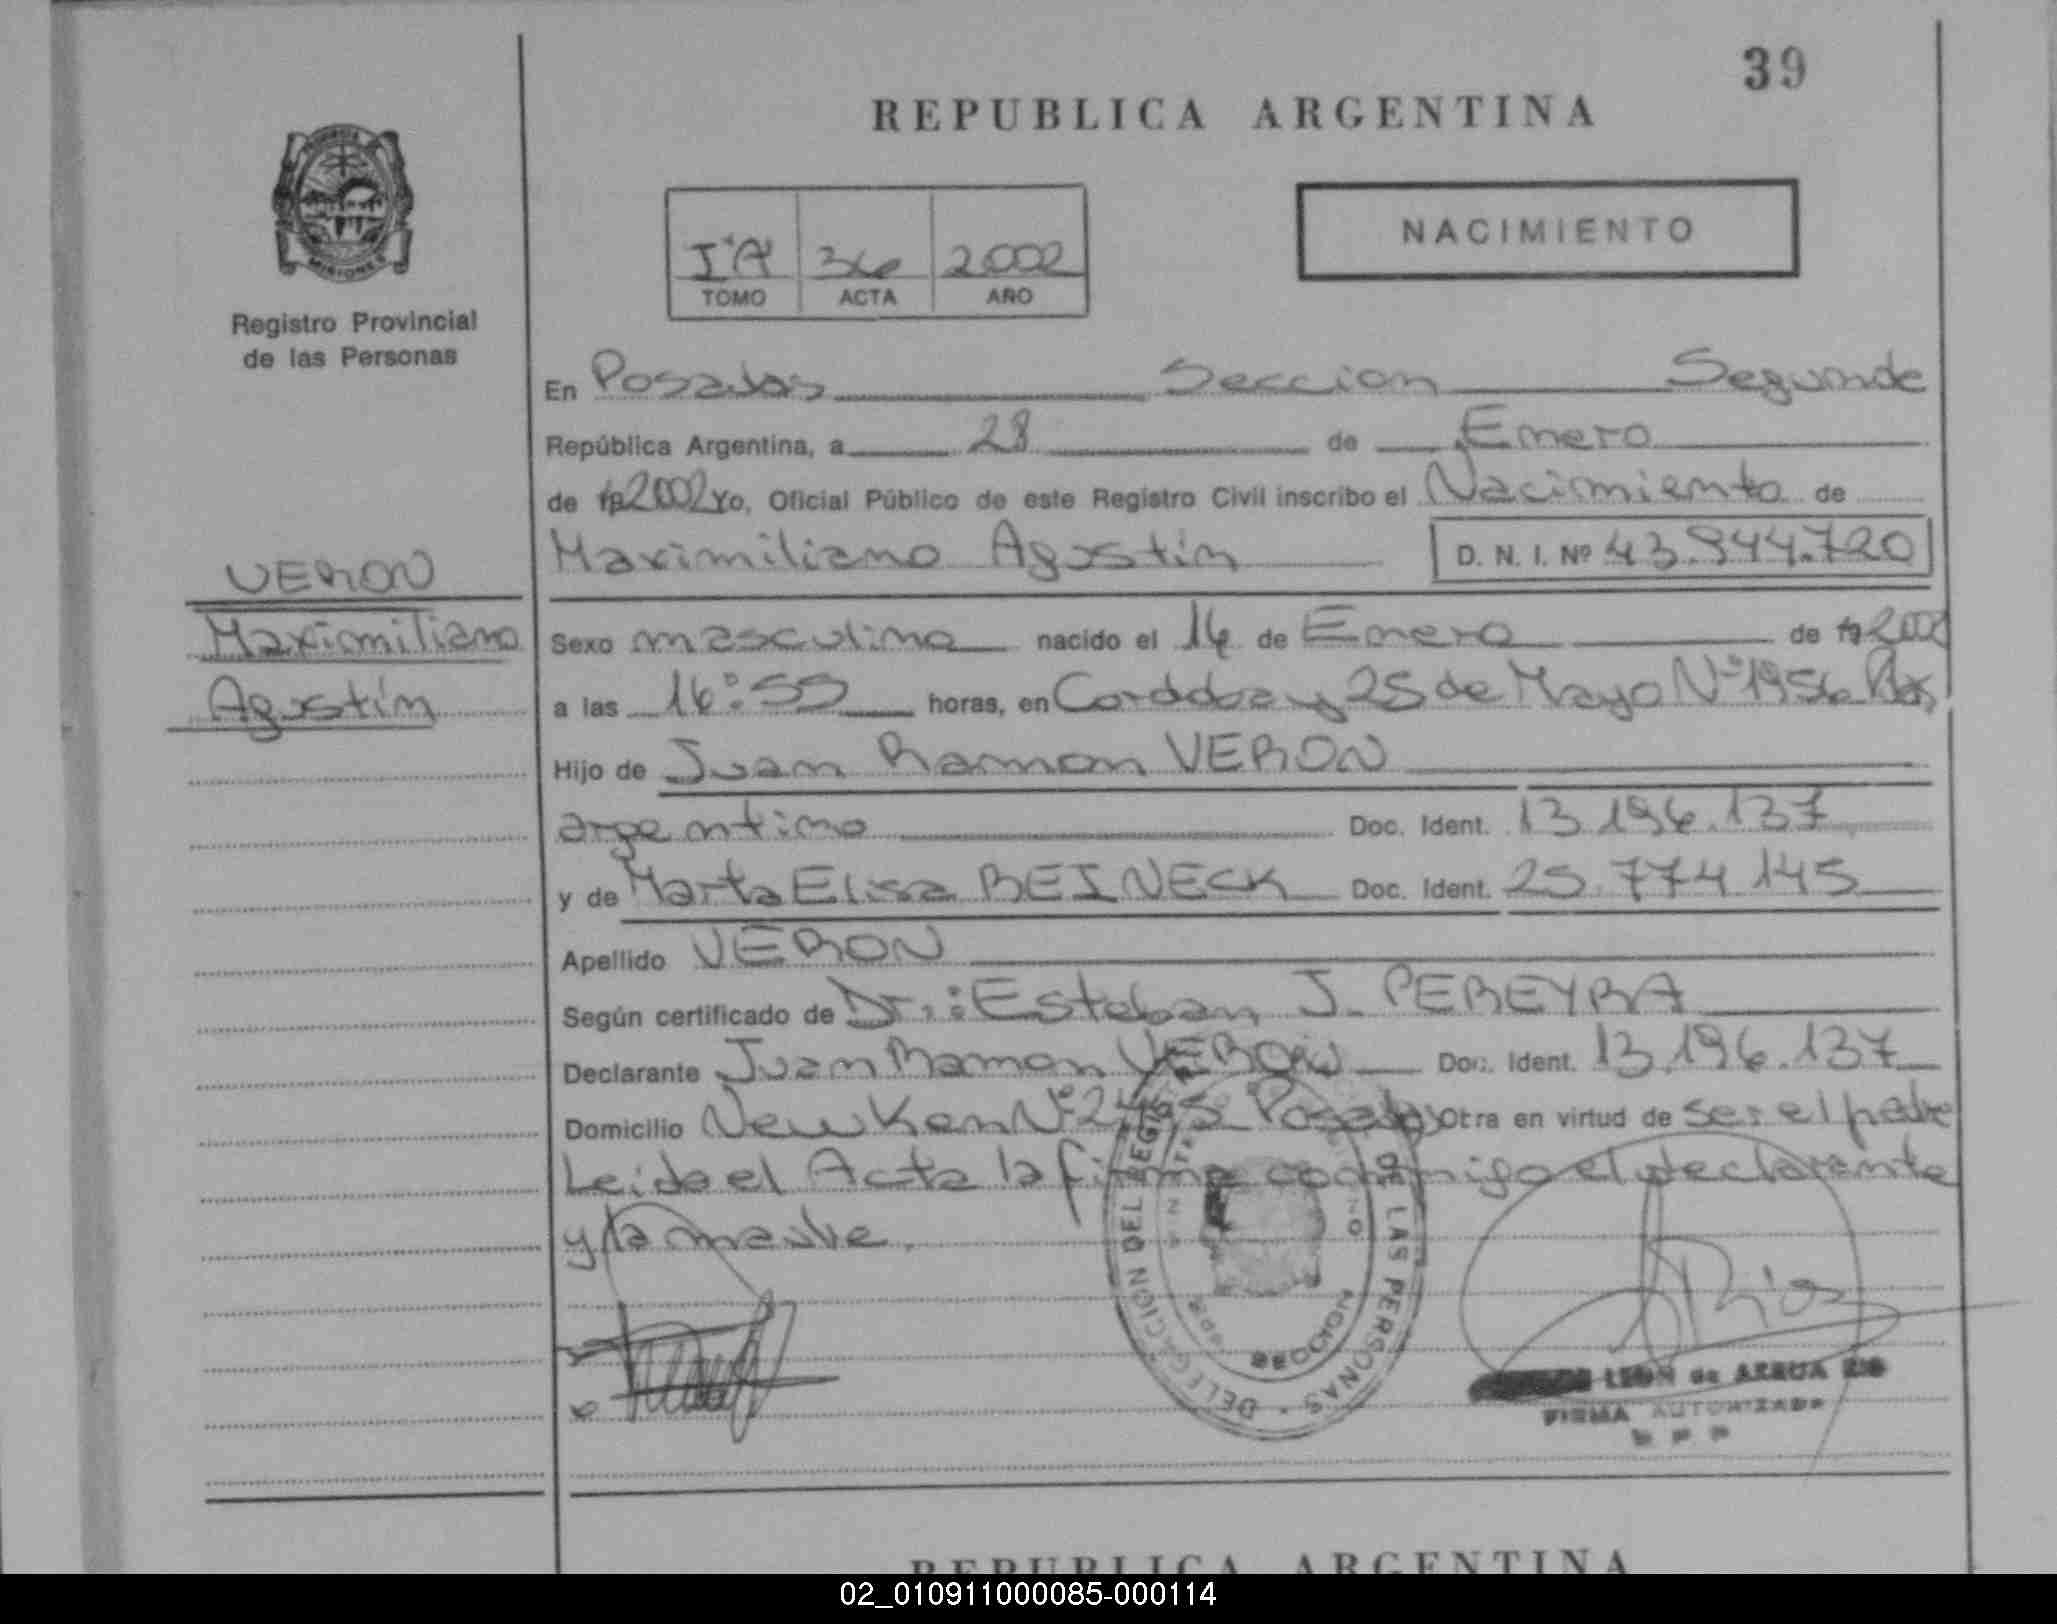 39
REPUBLICA ARGENTINA
MISIONES
Registro Provincial
de las Personas
NACIMIENTO
I"A" 36 2002
TOMO ACTA AÑO
En Posadas Seccion Segunda
República Argentina, a 28 de Enero
de 19 2002 Yo, Oficial Público de este Registro Civil inscribo el Nacimiento de
Maximiliano Agustín D. N. I. Nº 43.944.720
VERON
Maximiliano
Agustín
Sexo masculino nacido el 16 de Enero de 19 2002
a las 16:55 horas, en Corddoba y 25 de Mayo Nº 1956 Pdas
Hijo de Juan Ramon VERON
argentino Doc. Ident. 13.196.137
y de Marta Elisa BEINECK Doc. Ident. 25.774.145
Apellido VERON
Según certificado de Dr.: Esteban J. PEREYRA
Declarante Juan Ramon VERON Doc. Ident. 13.196.137
Domicilio Posadas Otra en virtud de ser el padre
Leida el Acta la firma conmigo el declarante
y la madre.
DELEGACION DEL REGISTRO DE LAS PERSONAS
SECCION
LEON de AZRUA
FIRMA AUTORIZADA
REPUBLICA ARGENTINA
02_010911000085-000114